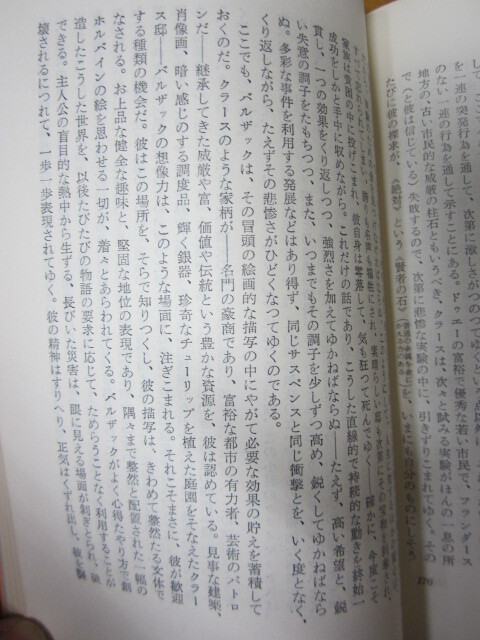 を一連の突発行為を通して、次第に激しさがつのって
のない一連の行為を通して示すことにある。ドゥエーの富裕で優秀な若い市民で、フランダース
地方の、古い市民的な威厳の柱石ともいうべき、クラースは、次々と試みる実験がほんの一息の所
で（と彼は信じている）失敗するので、次第に悲惨な実験の中に、引きずりこまれてゆく。その
たびに彼の探求が、《絶対》という《賢者の石》を、いまにも自分のものにしそう
家族は貧困の中に投げこまれ、彼自身は零落して、気も狂って死んでゆく――確かに、今度こそ
成功をしかと手中に収めながら。これだけの話であり、こうした直線的で持続的な動きを終始一
貫し、一つの効果をくり返しつつ、強烈さを加えてゆかねばならぬ――たえず、高い希望と、鋭
い失意の調子をたもちつつ、また、いつまでもその調子を少しずつ高め、鋭くしてゆかねばなら
ぬ。多彩な事件を利用する発展などはあり得ず、同じサスペンスと同じ衝撃とを、いく度となく、
くり返しながら、たえずその悲惨さがひどくなってゆくのである。
ここでも、バルザックは、その冒頭の絵画的な描写の中にやがて必要な効果の貯えを蓄積して
おくのだ。クラースのような家柄が――名門の豪商であり、富裕な都市の有力者、芸術のパトロ
ンだ――継承してきた威厳や富、価値や伝統という豊かな資源を、彼は認めている。見事な建築、
肖像画、暗い感じのする調度品、輝く銀器、珍奇なチューリップを植えた庭園をそなえたクラー
ス邸――バルザックの想像力は、このような場面に、注ぎこまれる。それこそまさに、彼が歓迎
する種類の機会だ。彼はこの場所を、そらで知りつくし、彼の描写は、きわめて整然たる文体で
なされる。お上品な健全な趣味と、堅固な地位の表現であり、隅々まで整然と配置された一幅の
ホルバインの絵を思わせる一切が、着々とあらわれてくる。バルザックがよく心得たやり方で創
造したこうした世界を、以後たびたびの物語の要求に応じて、ためらうことなく利用することが
できる。主人公の盲目的な熱中から生ずる、長びいた災害は、眼に見える場面が剝ぎとられ、破
壊されるにつれて、一歩一歩表現されてゆく。彼の精神はすりへり、正気はくずれ出し、彼を